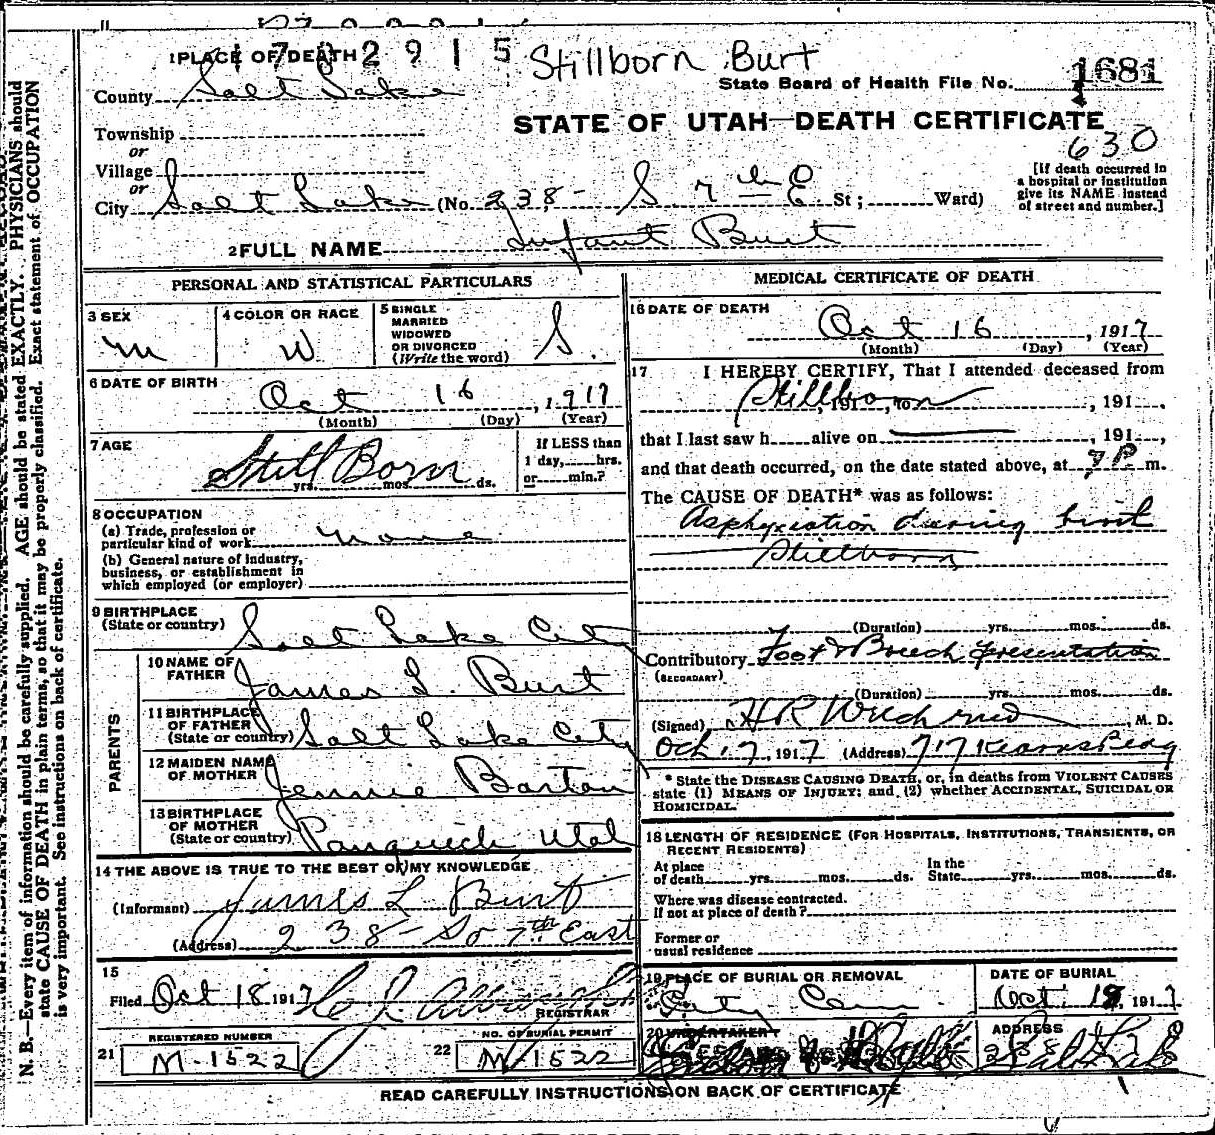 1702915 Stillborn Burt
1 PLACE OF DEATH
State Board of Health File No. 1681
County Salt Lake
STATE OF UTAH—DEATH CERTIFICATE
630
Township
or
Village
or
City Salt Lake (No. 238- S 7th E St; Ward)
[If death occurred in
a hospital or institution
give its NAME instead
of street and number.]
2 FULL NAME Infant Burt
PERSONAL AND STATISTICAL PARTICULARS
3 SEX
m
4 COLOR OR RACE
W
5 SINGLE
MARRIED
WIDOWED
OR DIVORCED
(Write the word)
S.
6 DATE OF BIRTH
Oct 16, 1917
(Month) (Day) (Year)
7 AGE
Still Born
yrs. mos. ds.
If LESS than
1 day, hrs.
or min.?
8 OCCUPATION
(a) Trade, profession or
particular kind of work none
(b) General nature of industry,
business, or establishment in
which employed (or employer)
9 BIRTHPLACE
(State or country) Salt Lake City
PARENTS
10 NAME OF
FATHER James L. Burt
11 BIRTHPLACE
OF FATHER
(State or country) Salt Lake City
12 MAIDEN NAME
OF MOTHER Jennie Barton
13 BIRTHPLACE
OF MOTHER
(State or country) Panquich Utah
14 THE ABOVE IS TRUE TO THE BEST OF MY KNOWLEDGE
(Informant) James L Burt
(Address) 238- So 7th East
15
Filed Oct 18 1917
REGISTRAR
REGISTERED NUMBER
21 M-1522
NO. OF BURIAL PERMIT
22 M-1522
MEDICAL CERTIFICATE OF DEATH
16 DATE OF DEATH
Oct 16, 1917
(Month) (Day) (Year)
17 I HEREBY CERTIFY, That I attended deceased from
Stillborn, 191 , to , 191 ,
that I last saw h alive on , 191 ,
and that death occurred, on the date stated above, at 7 P m.
The CAUSE OF DEATH* was as follows:
Asphyxiation during birth
Stillborn
(Duration) yrs. mos. ds.
Contributory Foot & Breech Presentation
(SECONDARY)
(Duration) yrs. mos. ds.
(Signed) H R , M. D.
Oct 17, 1917 (Address) 717 Kearns Bldg
* State the DISEASE CAUSING DEATH, or, in deaths from VIOLENT CAUSES
state (1) MEANS OF INJURY; and (2) whether ACCIDENTAL, SUICIDAL OR
HOMICIDAL.
18 LENGTH OF RESIDENCE (FOR HOSPITALS, INSTITUTIONS, TRANSIENTS, OR
RECENT RESIDENTS)
At place
of death yrs. mos. ds.
In the
State yrs. mos. ds.
Where was disease contracted.
If not at place of death?
Former or
usual residence
19 PLACE OF BURIAL OR REMOVAL
City Cem
DATE OF BURIAL
Oct. 18, 1917
20 UNDERTAKER
ADDRESS
Salt Lake
READ CAREFULLY INSTRUCTIONS ON BACK OF CERTIFICATE
N. B.—Every item of information should be carefully supplied. AGE should be stated EXACTLY. PHYSICIANS should
state CAUSE OF DEATH in plain terms, so that it may be properly classified. Exact statement of OCCUPATION
is very important. See instructions on back of certificate.